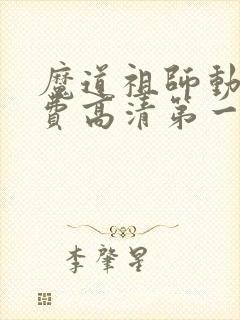 魔道祖師動
費高清第一
李肇星